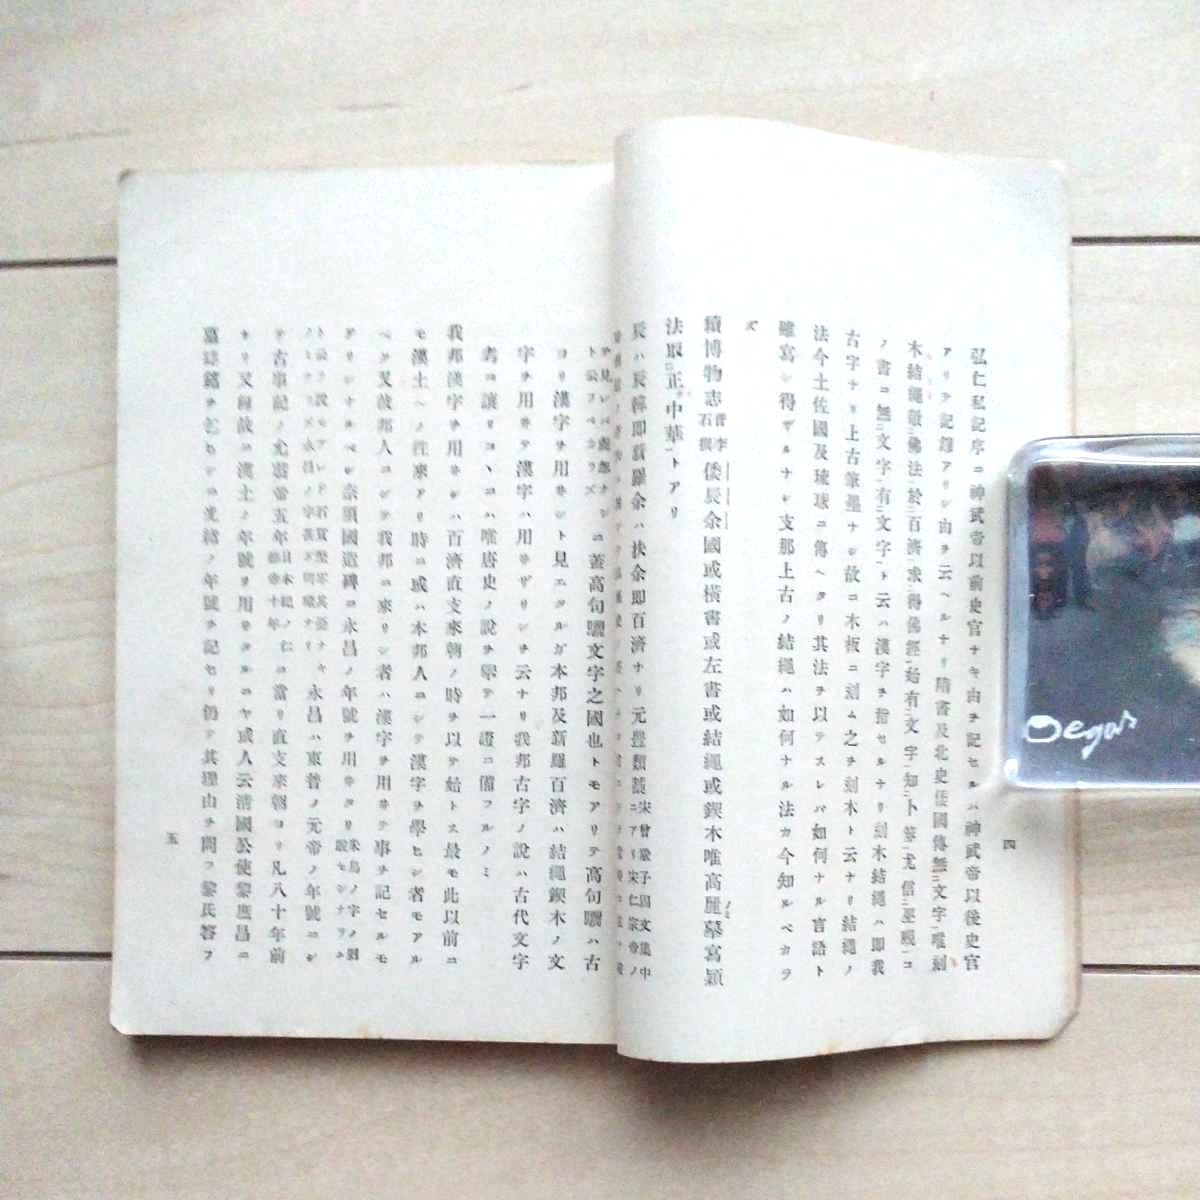 弘仁私記序ニ神武帝以前史官ナキ由ヲ記セルハ神武帝以後史官
アリテ記錄アリシ由ヲ云ヘルナリ隋書及北史倭國傳無文字唯刻
木結繩敬佛法於百濟求得佛經始有文字知卜筮尤信巫覡コ
ノ書ニ無文字有文字ト云ハ漢字ヲ指セルナリ刻木結繩ハ即我
古字ナリ上古筆墨ナシ故ニ木板ニ刻ム之ヲ刻木ト云ナリ結繩ノ
法今土佐國及琉球ニ傳ヘタリ其法ヲ以テスレバ如何ナル言語ト
雖寫シ得ザルナシ支那上古ノ結繩ハ如何ナル法カ今知ルベカラ
ズ
續博物志晋李石撰倭辰余國或橫書或左書或結繩或鍥木唯高麗摹寫穎
法取正中華トアリ
辰ハ辰韓即新羅余ハ扶余即百濟ナリ元豊類藁宋曾鞏子固文集中ニアリ宋仁宗帝ノ
ト云フベカラズ ニ蓋高句驪文字之國也トモアリテ高句驪ハ古
ヨリ漢字ヲ用井シト見エタルガ本邦及新羅百濟ハ結繩鍥木ノ文
字ヲ用井テ漢字ハ用井ザリシヲ云ナリ我邦古字ノ說ハ古代文字
考ニ讓リコヽニハ唯唐史ノ說ヲ擧テ一證ニ備フルノミ
我邦漢字ヲ用井シハ百濟直支來朝ノ時ヲ以テ始トス最モ此以前ニ
モ漢土ヘノ往來アリ時ニ或ハ本邦人ニシテ漢字ヲ學ヒシ者モアル
ベク又彼邦人ニシテ我邦ニ來リシ者ハ漢字ヲ用井テ事ヲ記セルモ
アリシナルベシ奈須國造碑ニ永昌ノ年號ヲ用井タリ朱鳥ノ字ノ
ト云フ說モアレド 永昌ハ東晋ノ元帝ノ年號ニシ
テ古事記ノ允恭帝五年日本紀ノ仁德帝十年ニ當リ直支來朝ヨリ凡八十年前
ナリ又何故ニ漢土ノ年號ヲ用井タルニヤ或人云淸國公使黎庶昌ニ
墓誌銘ヲ乞ヒシニ光緒ノ年號ヲ記セリ仍テ其理由ヲ問フ黎氏答フ
四
五
Degas